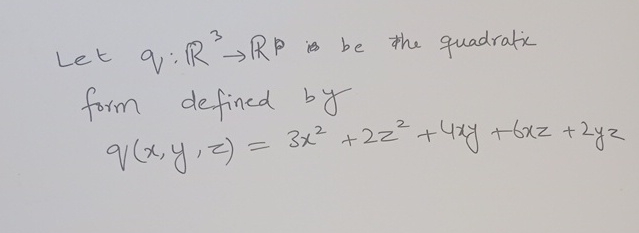 Let q : ℝ³ → ℝ be the quadratic
form defined by
q(x, y, z) = 3x² + 2z² + 4xy + 6xz + 2yz